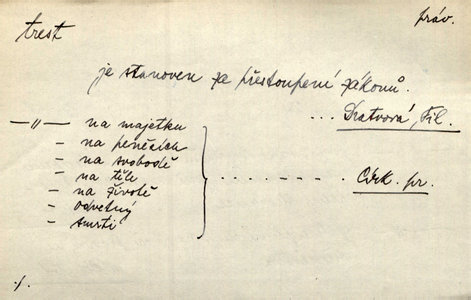 trest
práv.
je stanoven za přestoupení zákonů.
... Kratvová, Fil.
—"— na majetku
- na penězích
- na svobodě
- na těle
- na životě
- odvetný
- smrti
. . . . . . . . . Círk. pr.
./.